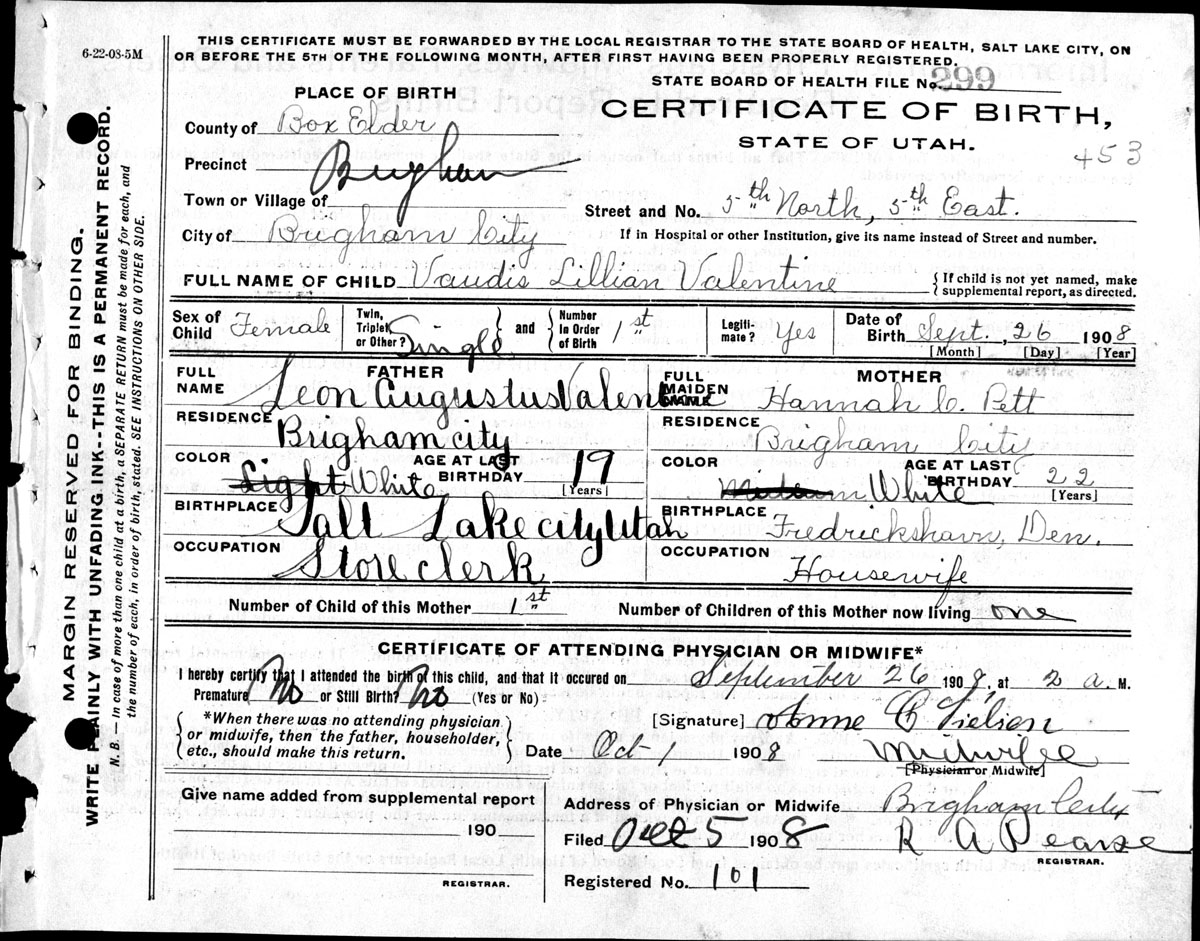 6-22-08-5M
THIS CERTIFICATE MUST BE FORWARDED BY THE LOCAL REGISTRAR TO THE STATE BOARD OF HEALTH, SALT LAKE CITY, ON
OR BEFORE THE 5TH OF THE FOLLOWING MONTH, AFTER FIRST HAVING BEEN PROPERLY REGISTERED.
STATE BOARD OF HEALTH FILE No. 299
PLACE OF BIRTH
CERTIFICATE OF BIRTH,
STATE OF UTAH.
453
County of Box Elder
Precinct Brigham
Town or Village of
Street and No. 5th North, 5th East.
City of Brigham City
If in Hospital or other Institution, give its name instead of Street and number.
FULL NAME OF CHILD Vaudis Lillian Valentine
{ If child is not yet named, make
supplemental report, as directed.
Sex of Child Female
Twin, Triplet or Other? Single } and { Number In Order of Birth 1st
Legitimate? Yes
Date of Birth Sept., 26 1908
[Month] [Day] [Year]
FATHER
FULL NAME Leon Augustus Valen
RESIDENCE Brigham city
COLOR Light White
AGE AT LAST BIRTHDAY 19 [Years]
BIRTHPLACE Salt Lake city Utah
OCCUPATION Store clerk
MOTHER
FULL MAIDEN NAME Hannah C. Pett
RESIDENCE Brigham City
COLOR Medium White
AGE AT LAST BIRTHDAY 22 [Years]
BIRTHPLACE Fredrickshavn, Den.
OCCUPATION Housewife
Number of Child of this Mother 1st
Number of Children of this Mother now living one
CERTIFICATE OF ATTENDING PHYSICIAN OR MIDWIFE*
I hereby certify that I attended the birth of this child, and that it occured on September 26 1908, at 2 a. M.
Premature No or Still Birth? No (Yes or No)
{ *When there was no attending physician
or midwife, then the father, householder,
etc., should make this return. }
[Signature] Anne C
Date Oct 1 1908
Midwife
[Physician or Midwife]
Give name added from supplemental report
190
REGISTRAR.
Address of Physician or Midwife Brigham City
Filed Oct 5 1908
R A Pearse
REGISTRAR.
Registered No. 101
MARGIN RESERVED FOR BINDING.
WRITE PLAINLY WITH UNFADING INK--THIS IS A PERMANENT RECORD.
N. B.—In case of more than one child at a birth, a SEPARATE RETURN must be made for each, and
the number of each, in order of birth, stated. SEE INSTRUCTIONS ON OTHER SIDE.